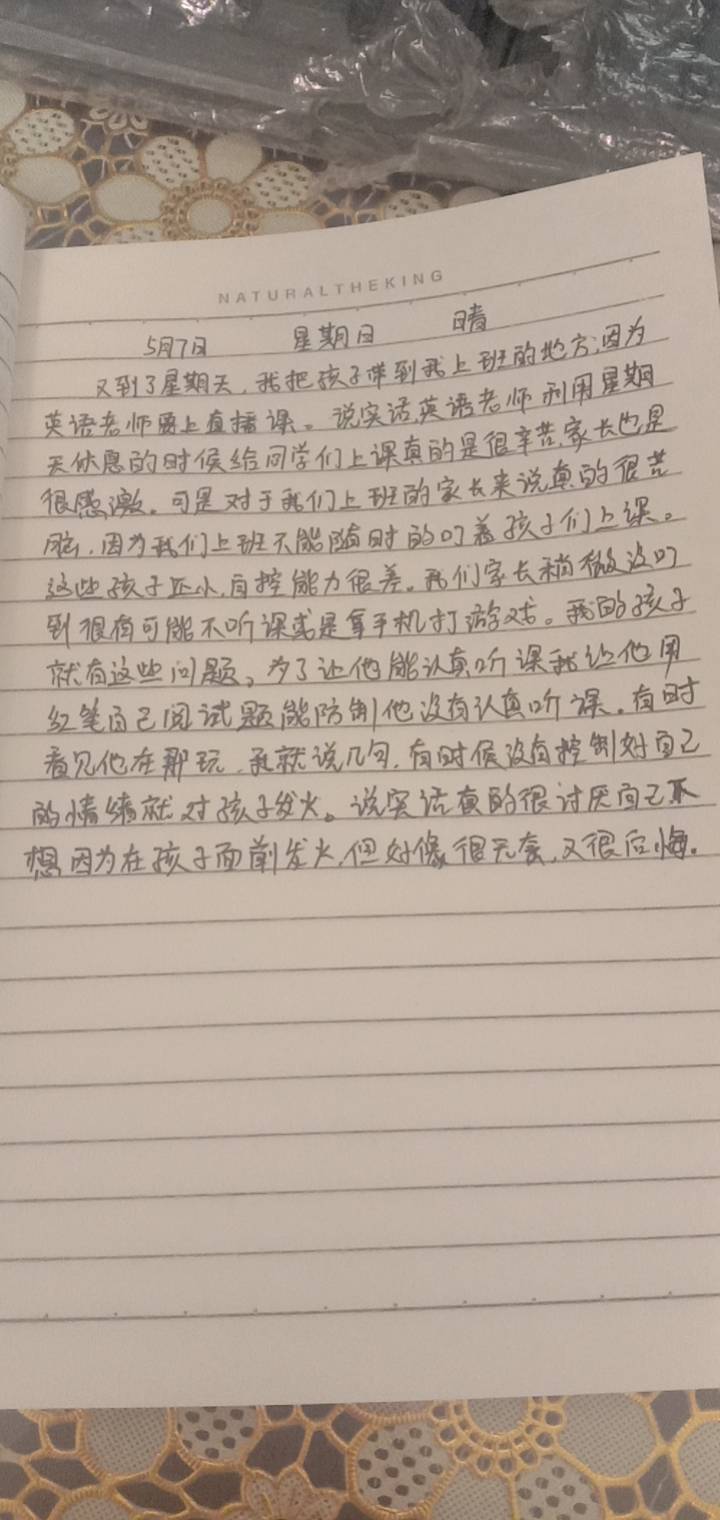 NATURALTHEKING
5月7日 星期日 晴
又到了星期天，我把孩子带到我上班的地方，因为
英语老师要上直播课。说实话，英语老师利用星期
天休息的时候给同学们上课真的是很辛苦，家长也是
很感激。可是对于我们上班的家长来说真的很苦
恼，因为我们上班不能随时的叮着孩子们上课。
这些孩子还小，自控能力很差。我们家长稍微没叮
到很有可能不听课或是拿手机打游戏。我的孩子
就有这些问题。为了让他能认真听课我让他用
红笔自己阅试题能防制他没有认真听课。有时
看见他在那玩，我就说几句，有时候没有控制好自己
的情绪就对孩子发火。说实话真的很讨厌自己不
想因为在孩子面前发火，但好像很无奈，又很后悔。